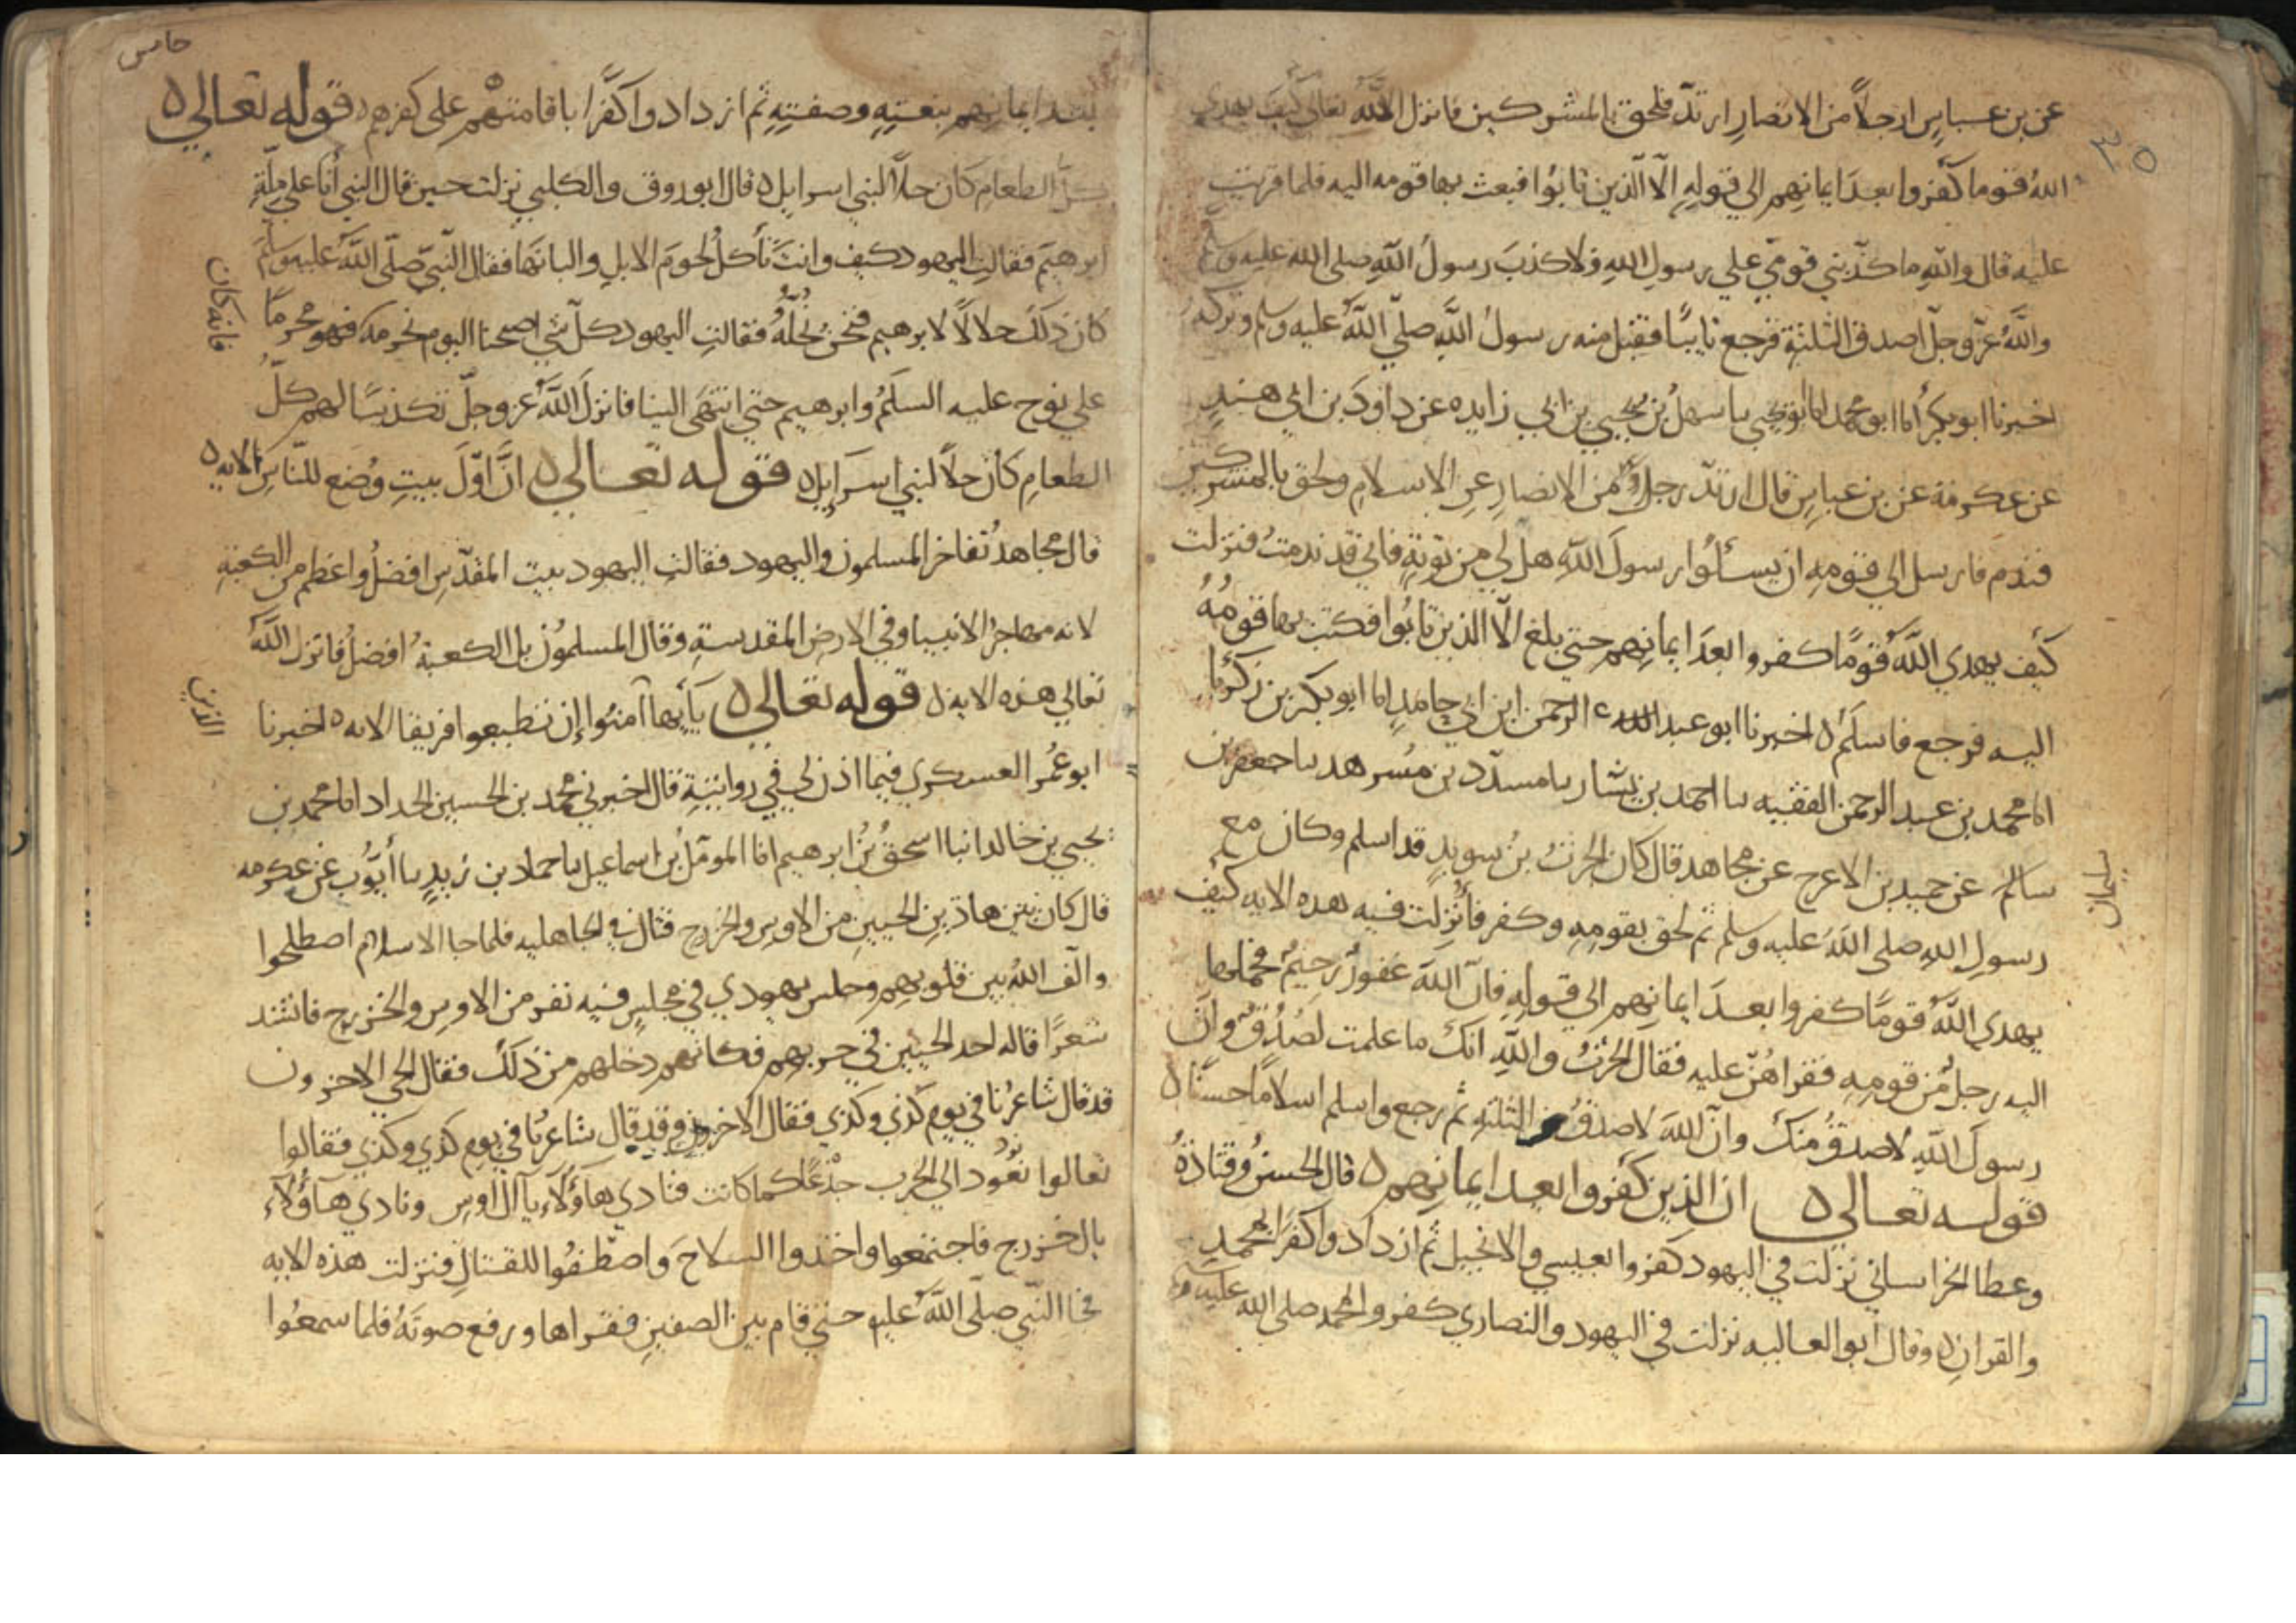 ٣٥
عن بن عباس ان رجلاً من الانصارِ ارتدّ فلحق بالمشركين فانزل اللّهُ تعالى كيف يهدي
اللهُ قوما كفروا بعدَ ايمانِهم الي قولِهِ الّا الّذين تابُوا فبعث بها قومه اليه فلما قرئت
عليه قال واللّهِ ما كذّبني قومي علي رسولِ اللهِ ولا كذبَ رسولُ اللّهِ صلى الله عليه وسلم
واللّهُ عزّ وجلّ اصدق الثلثةِ فرجع تايبًا فقبل منه رسولُ اللّهِ صلّي اللّهُ عليه وسلم وتركه
اخبرنا ابو بكر أنا ابو محمد انا ابو يحيي نا سهلُ بن يحيي بن ابي زايده عن داودَ بن ابي هندٍ
عن عكرمة عن بن عباسٍ قال ارتدّ رجلٌ من الانصارِ عن الاسلامِ ولحق بالمشركين
فندم فارسل الي قومِهِ ان يسألُوا رسولَ اللّهِ هل لي من توبةٍ فاني قد ندمتُ فنزلت
كيف يهدي اللّهُ قومًا كفروا بعدَ ايمانِهم حتي بلغ الّا الذين تابُوا فكتب بها قومُهُ
اليه فرجع فاسلَم ه اخبرنا ابو عبد الرحمن ابن ابي حامدٍ انا ابو بكر بن زكريا
انا محمد بن عبد الرحمن الفقيه نا احمد بن بشار نا مسدّد بن مُسرهد نا جعفر بن
سليمان
سالم عن حميد بن الاعرج عن مجاهد قال كان الحرثُ بنُ سويدٍ قد اسلم وكان مع
رسولِ اللهِ صلى اللّهُ عليه وسلم ثم لحق بقومِهِ وكفر فأُنْزِلت فيه هذه الايه كيف
يهدي اللّهُ قومًا كفروا بعدَ ايمانِهم الي قولِهِ فانّ اللّهَ غفورٌ رحيمٌ فحملها
اليه رجلٌ من قومِهِ فقراهُنّ عليه فقال الحرثُ واللّهِ انك ما علمت لصُدُقٌ وانّ
رسولَ اللّهِ لاصدقُ منكَ وانّ اللهَ لاصدقُ الثلثهِ ثم رجع واسلم اسلامًا حسنًا ه
قوله تعالي ه ان الذين كفروا بعد ايمانِهم ه قال الحسنُ وقتادةُ
وعطا الخراساني نزلت في اليهود كفروا بعيسي والانجيل ثم ازدادوا كفرًا بمحمدٍ
والقرانِ ه وقال ابو العاليه نزلت في اليهود والنصاري كفروا بمحمد صلى الله عليه وسلم
خامس
بعد ايمانِهم بنعتِهِ وصفتِهِ ثم ازدادوا كفرًا باقامتهْم علي كفرهم ه قوله تعالي ه
كلُّ الطعامِ كان حلاًّ لبني اسرايل ه قال ابو روق والكلبي نزلت حين قال النبي أنا علي ملّةِ
ابرهيمَ فقالت اليهود كيف وانتَ تأكلُ لحومَ الابلِ والبانَها فقال النّبيّ صلّى اللّهُ عليه وسلم
كان ذلكَ حلالاً لابرهيم فنحن نُحلُّهُ فقالتِ اليهود كلّ شي اصبحنا اليوم نحرمه فهو محرمًا
فانه كان
علي نوح عليه السلَمُ وابرهيم حتي انتهَى الينا فانزلَ اللّهُ عز وجلّ تكذيبًا لهم كلُّ
الطعامِ كانَ حلاًّ لبني اسرَايل ه قوله تعالي ه انَّ اوّلَ بيتٍ وُضع للنّاسِ الايه ه
قال مجاهدٌ تفاخر المسلمون واليهود فقالتِ اليهود بيت المقدّسِ افضلُ واعظم من الكعبةِ
لانه مهاجرُ الانبيا وفي الارضِ المقدسةِ وقال المسلمُون بل الكعبةُ افضلُ فانزل اللّهُ
تعالي هذه الايه ه قوله تعالي ه يَا أَيها آمنُوا إِن تطيعوا فريقا الايه ه اخبرنا
الذين
ابو عُمر العسكري فيما اذن لي في روايتِهِ قال اخبرني محمد بن الحسين الحداد انا محمد بن
يحيي بن خالد انبا اسحقُ بنُ ابرهيم انا المومّلُ بن اسماعيل نا حماد بن زيدٍ نا أَيّوُب عن عكرمه
قال كان بين هاذينِ الحيينِ من الاوسِ والخزرج قتال في الجاهليه فلما جا الاسلام اصطلحوا
والّف اللهُ بين قلوبِهم وجلس يهودي في مجلسٍ فيه نفر من الاوسِ والخزرجِ فانشد
شعرًا قاله احد الحيين في حربِهم فكانهم دخلهم من ذلكَ فقال الحي الاخرون
قد قال شاعرُنا في يومِ كذي وكذي فقال الآخرون وقد قال شاعرُنا في يومِ كذي وكذي فقالوا
تعالوا نعُود الي الحرب جذعًا كما كانت فنادي هآؤلآءِ يا آل اوس ونادي هآؤلآء
يال خزرج فاجتمعوا واخذوا السلاحَ واصْطفُوا للقتالِ فنزلت هذه الايه
فجا النّبي صلّى اللّهُ عليه حتي قام بين الصفينِ فقراها ورفع صوتَهُ فلما سمعُوا